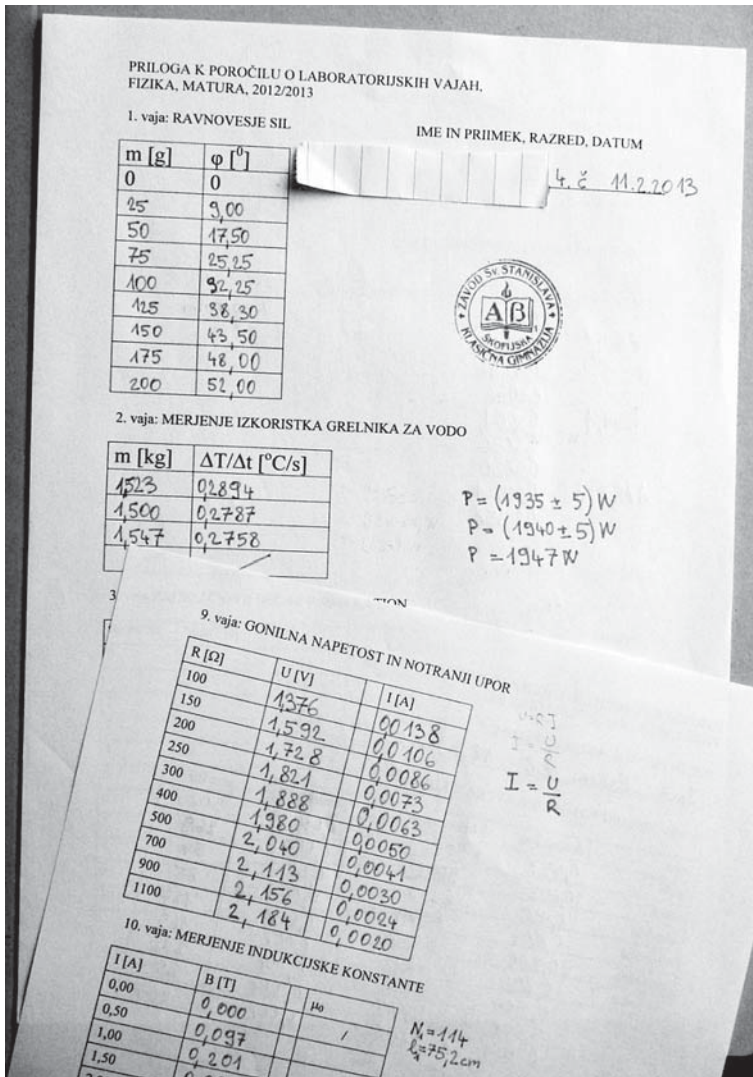 PRILOGA K POROČILU O LABORATORIJSKIH VAJAH,
FIZIKA, MATURA, 2012/2013
1. vaja: RAVNOVESJE SIL
IME IN PRIIMEK, RAZRED, DATUM
4. č 11.2.2013
m [g] φ [⁰]
0 0
25 9,00
50 17,50
75 25,25
100 32,25
125 38,30
150 43,50
175 48,00
200 52,00
ZAVOD SV. STANISLAVA
AB
ŠKOFIJSKA
KLASIČNA GIMNAZIJA
2. vaja: MERJENJE IZKORISTKA GRELNIKA ZA VODO
m [kg] ΔT/Δt [°C/s]
1,523 0,2894
1,500 0,2787
1,547 0,2758
P = (1935 ± 5) W
P = (1940 ± 5) W
P = 1947 W
3
TION
9. vaja: GONILNA NAPETOST IN NOTRANJI UPOR
R [Ω] U [V] I [A]
100 1,376 0,0138
150 1,592 0,0106
200 1,728 0,0086
250 1,821 0,0073
300 1,888 0,0063
400 1,980 0,0050
500 2,040 0,0041
700 2,113 0,0030
900 2,156 0,0024
1100 2,184 0,0020
I = U/R
10. vaja: MERJENJE INDUKCIJSKE KONSTANTE
I [A] B [T] μ₀
0,00 0,000 /
0,50 0,097
1,00 0,201
1,50
N₁ = 114
l₁ = 75,2 cm